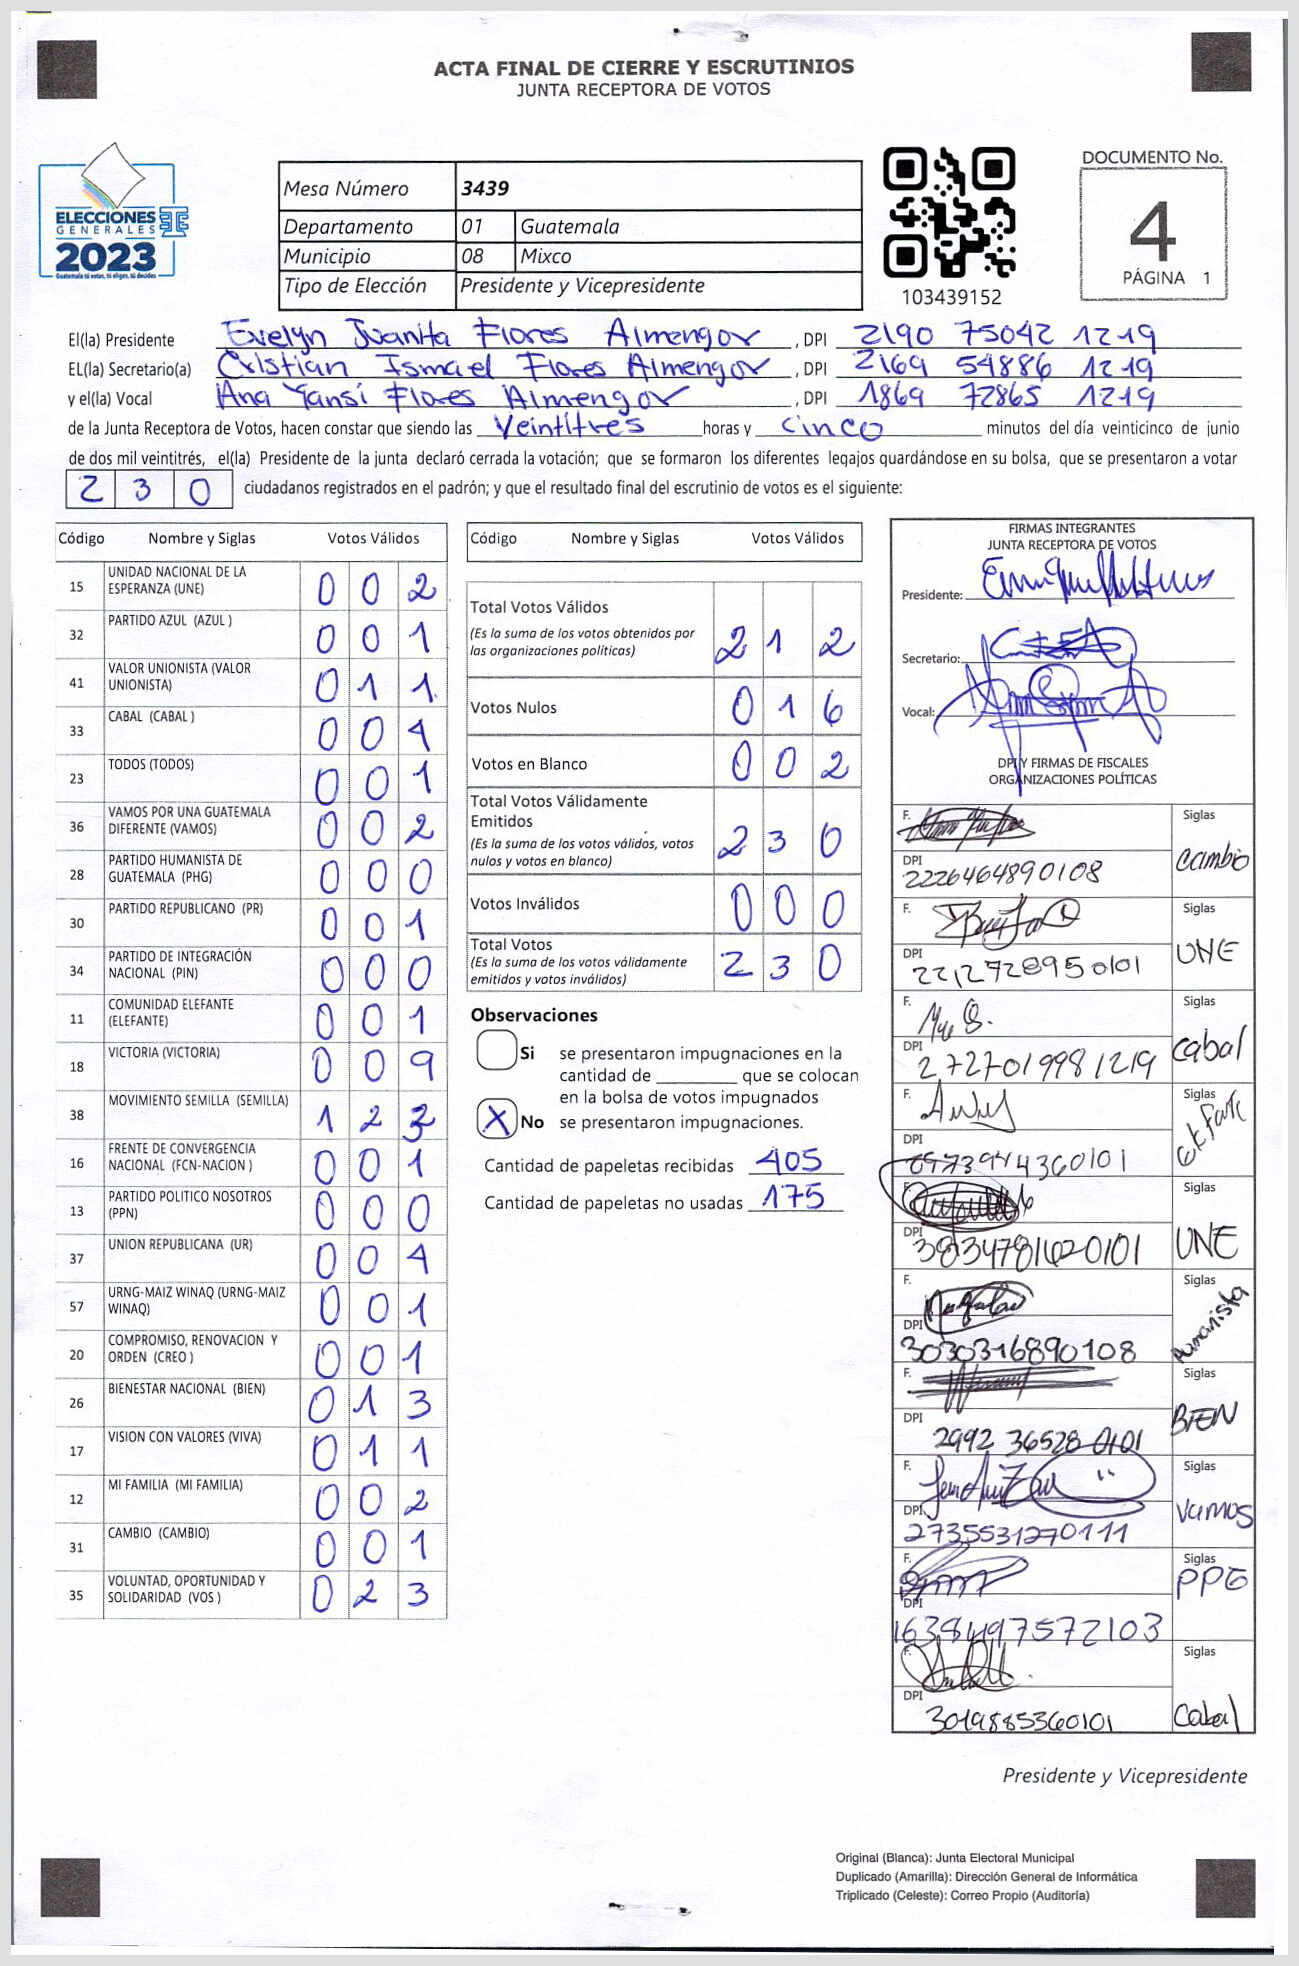 ACTA FINAL DE CIERRE Y ESCRUTINIOS
JUNTA RECEPTORA DE VOTOS
ELECCIONES
GENERALES
2023
Guatemala tú votas, tú eliges, tú decides
Mesa Número 3439
Departamento 01 Guatemala
Municipio 08 Mixco
Tipo de Elección Presidente y Vicepresidente
103439152
DOCUMENTO No.
4
PÁGINA 1
El(la) Presidente Evelyn Juanita Flores Almengor, DPI 2190 75042 1219
EL(la) Secretario(a) Cristian Ismael Flores Almengor, DPI 2169 54886 1219
y el(la) Vocal Ana Yansi Flores Almengor, DPI 1869 72865 1219
de la Junta Receptora de Votos, hacen constar que siendo las Veintitres horas y cinco minutos del día veinticinco de junio
de dos mil veintitrés, el(la) Presidente de la junta declaró cerrada la votación; que se formaron los diferentes legajos guardándose en su bolsa, que se presentaron a votar
230 ciudadanos registrados en el padrón; y que el resultado final del escrutinio de votos es el siguiente:
Código Nombre y Siglas Votos Válidos
15 UNIDAD NACIONAL DE LA ESPERANZA (UNE) 002
32 PARTIDO AZUL (AZUL ) 001
41 VALOR UNIONISTA (VALOR UNIONISTA) 011
33 CABAL (CABAL ) 004
23 TODOS (TODOS) 001
36 VAMOS POR UNA GUATEMALA DIFERENTE (VAMOS) 002
28 PARTIDO HUMANISTA DE GUATEMALA (PHG) 000
30 PARTIDO REPUBLICANO (PR) 001
34 PARTIDO DE INTEGRACIÓN NACIONAL (PIN) 000
11 COMUNIDAD ELEFANTE (ELEFANTE) 001
18 VICTORIA (VICTORIA) 009
38 MOVIMIENTO SEMILLA (SEMILLA) 123
16 FRENTE DE CONVERGENCIA NACIONAL (FCN-NACION ) 001
13 PARTIDO POLITICO NOSOTROS (PPN) 000
37 UNION REPUBLICANA (UR) 004
57 URNG-MAIZ WINAQ (URNG-MAIZ WINAQ) 001
20 COMPROMISO, RENOVACION Y ORDEN (CREO ) 001
26 BIENESTAR NACIONAL (BIEN) 013
17 VISION CON VALORES (VIVA) 011
12 MI FAMILIA (MI FAMILIA) 002
31 CAMBIO (CAMBIO) 001
35 VOLUNTAD, OPORTUNIDAD Y SOLIDARIDAD (VOS ) 023
Código Nombre y Siglas Votos Válidos
Total Votos Válidos 212
(Es la suma de los votos obtenidos por
las organizaciones políticas)
Votos Nulos 016
Votos en Blanco 002
Total Votos Válidamente
Emitidos 230
(Es la suma de los votos válidos, votos
nulos y votos en blanco)
Votos Inválidos 000
Total Votos 230
(Es la suma de los votos válidamente
emitidos y votos inválidos)
Observaciones
Si se presentaron impugnaciones en la
cantidad de ________ que se colocan
en la bolsa de votos impugnados
X No se presentaron impugnaciones.
Cantidad de papeletas recibidas 405
Cantidad de papeletas no usadas 175
FIRMAS INTEGRANTES
JUNTA RECEPTORA DE VOTOS
Presidente:
Secretario:
Vocal:
DPI Y FIRMAS DE FISCALES
ORGANIZACIONES POLÍTICAS
F. Siglas
DPI 2226464890108 Cambio
F. Siglas
DPI 2212728950101 UNE
F. Siglas
DPI 2727019981219 Cabal
F. Siglas
DPI
F. Siglas
DPI UNE
F. Siglas
DPI 3030316890108 Humanista
F. Siglas
DPI 2992 36528 0101 BIEN
F. Siglas
DPI 2735531270111 Vamos
F. Siglas
DPI 1638497572103
F. Siglas
DPI 3019885360101 Cabal
Presidente y Vicepresidente
Original (Blanca): Junta Electoral Municipal
Duplicado (Amarilla): Dirección General de Informática
Triplicado (Celeste): Correo Propio (Auditoría)